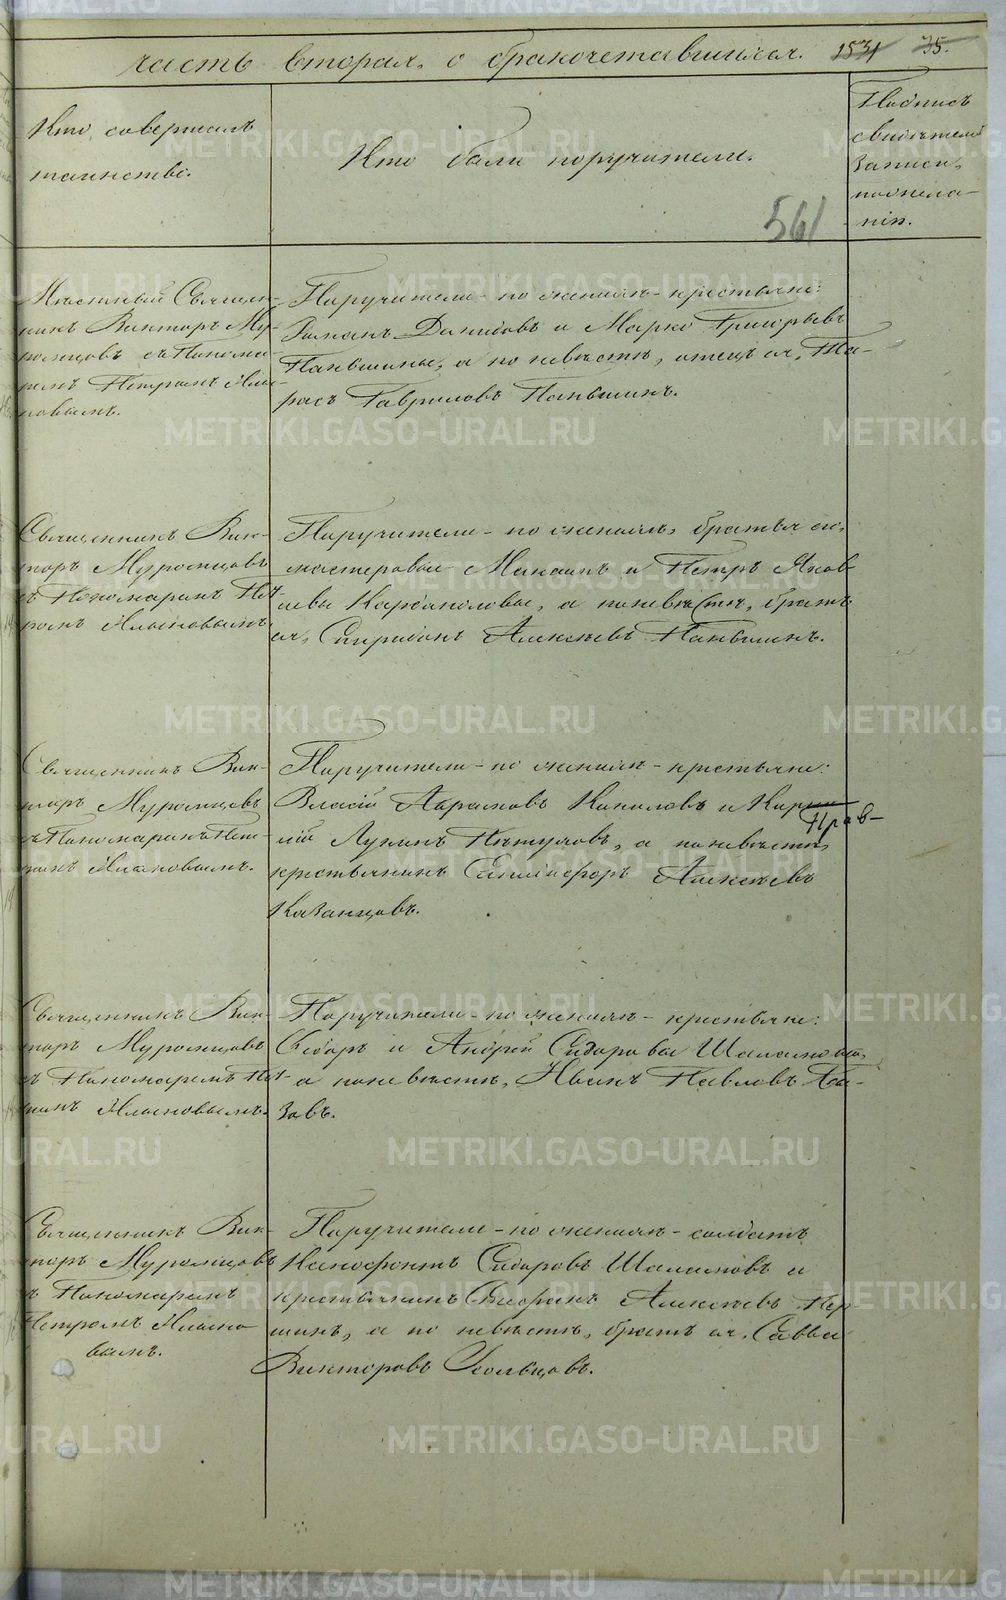 часть вторая, о бракосочетавшихся. 1531 35.
Кто совершалъ
таинство.
Кто были поручители.
Подпись
свидѣтелей
записи
по желанію.
561
Мѣстный Священ-
никъ Викторъ Му-
ромцовъ съ Понома-
ремъ Петромъ
Поручители - по женихѣ - крестьяне:
Романъ Давидовъ и Марко Григорьевъ
Паньшины, а по невѣстѣ, отецъ ея, Та-
расъ Гавриловъ Паньшинъ.
Священникъ Вик-
торъ Муромцовъ
съ Пономаремъ Пет-
ромъ
Поручители - по женихѣ, братья его,
мастеровые Максимъ и Петръ Яков
левы Карфаполовы, а по невѣстѣ, братъ
ея, Спиридонъ Алексѣевъ Паньшинъ.
Священникъ Вик-
торъ Муромцовъ
съ Пономаремъ Пет-
ромъ
Поручители - по женихѣ - крестьяне:
Власій Абрамовъ и
Прав-
Лукинъ Пѣтуховъ, а по невѣстѣ,
крестьянинъ Никифоръ Алексѣевъ
Казанцовъ.
Священникъ Вик-
торъ Муромцовъ
съ Пономаремъ Пет-
ромъ
Поручители - по женихѣ - крестьяне:
Ѳедоръ и Андрей Сидоровы Шаламовы,
а по невѣстѣ, Иванъ Павловъ
зовъ.
Священникъ Вик-
торъ Муромцовъ
съ Пономаремъ
Петромъ
Поручители - по женихѣ - солдатъ
Ксенофонтъ Сидоровъ Шаламовъ и
крестьянинъ Алексѣевъ Пер
шинъ, а по невѣстѣ, братъ ея, Савва
Викторовъ
METRIKI.GASO-URAL.RU